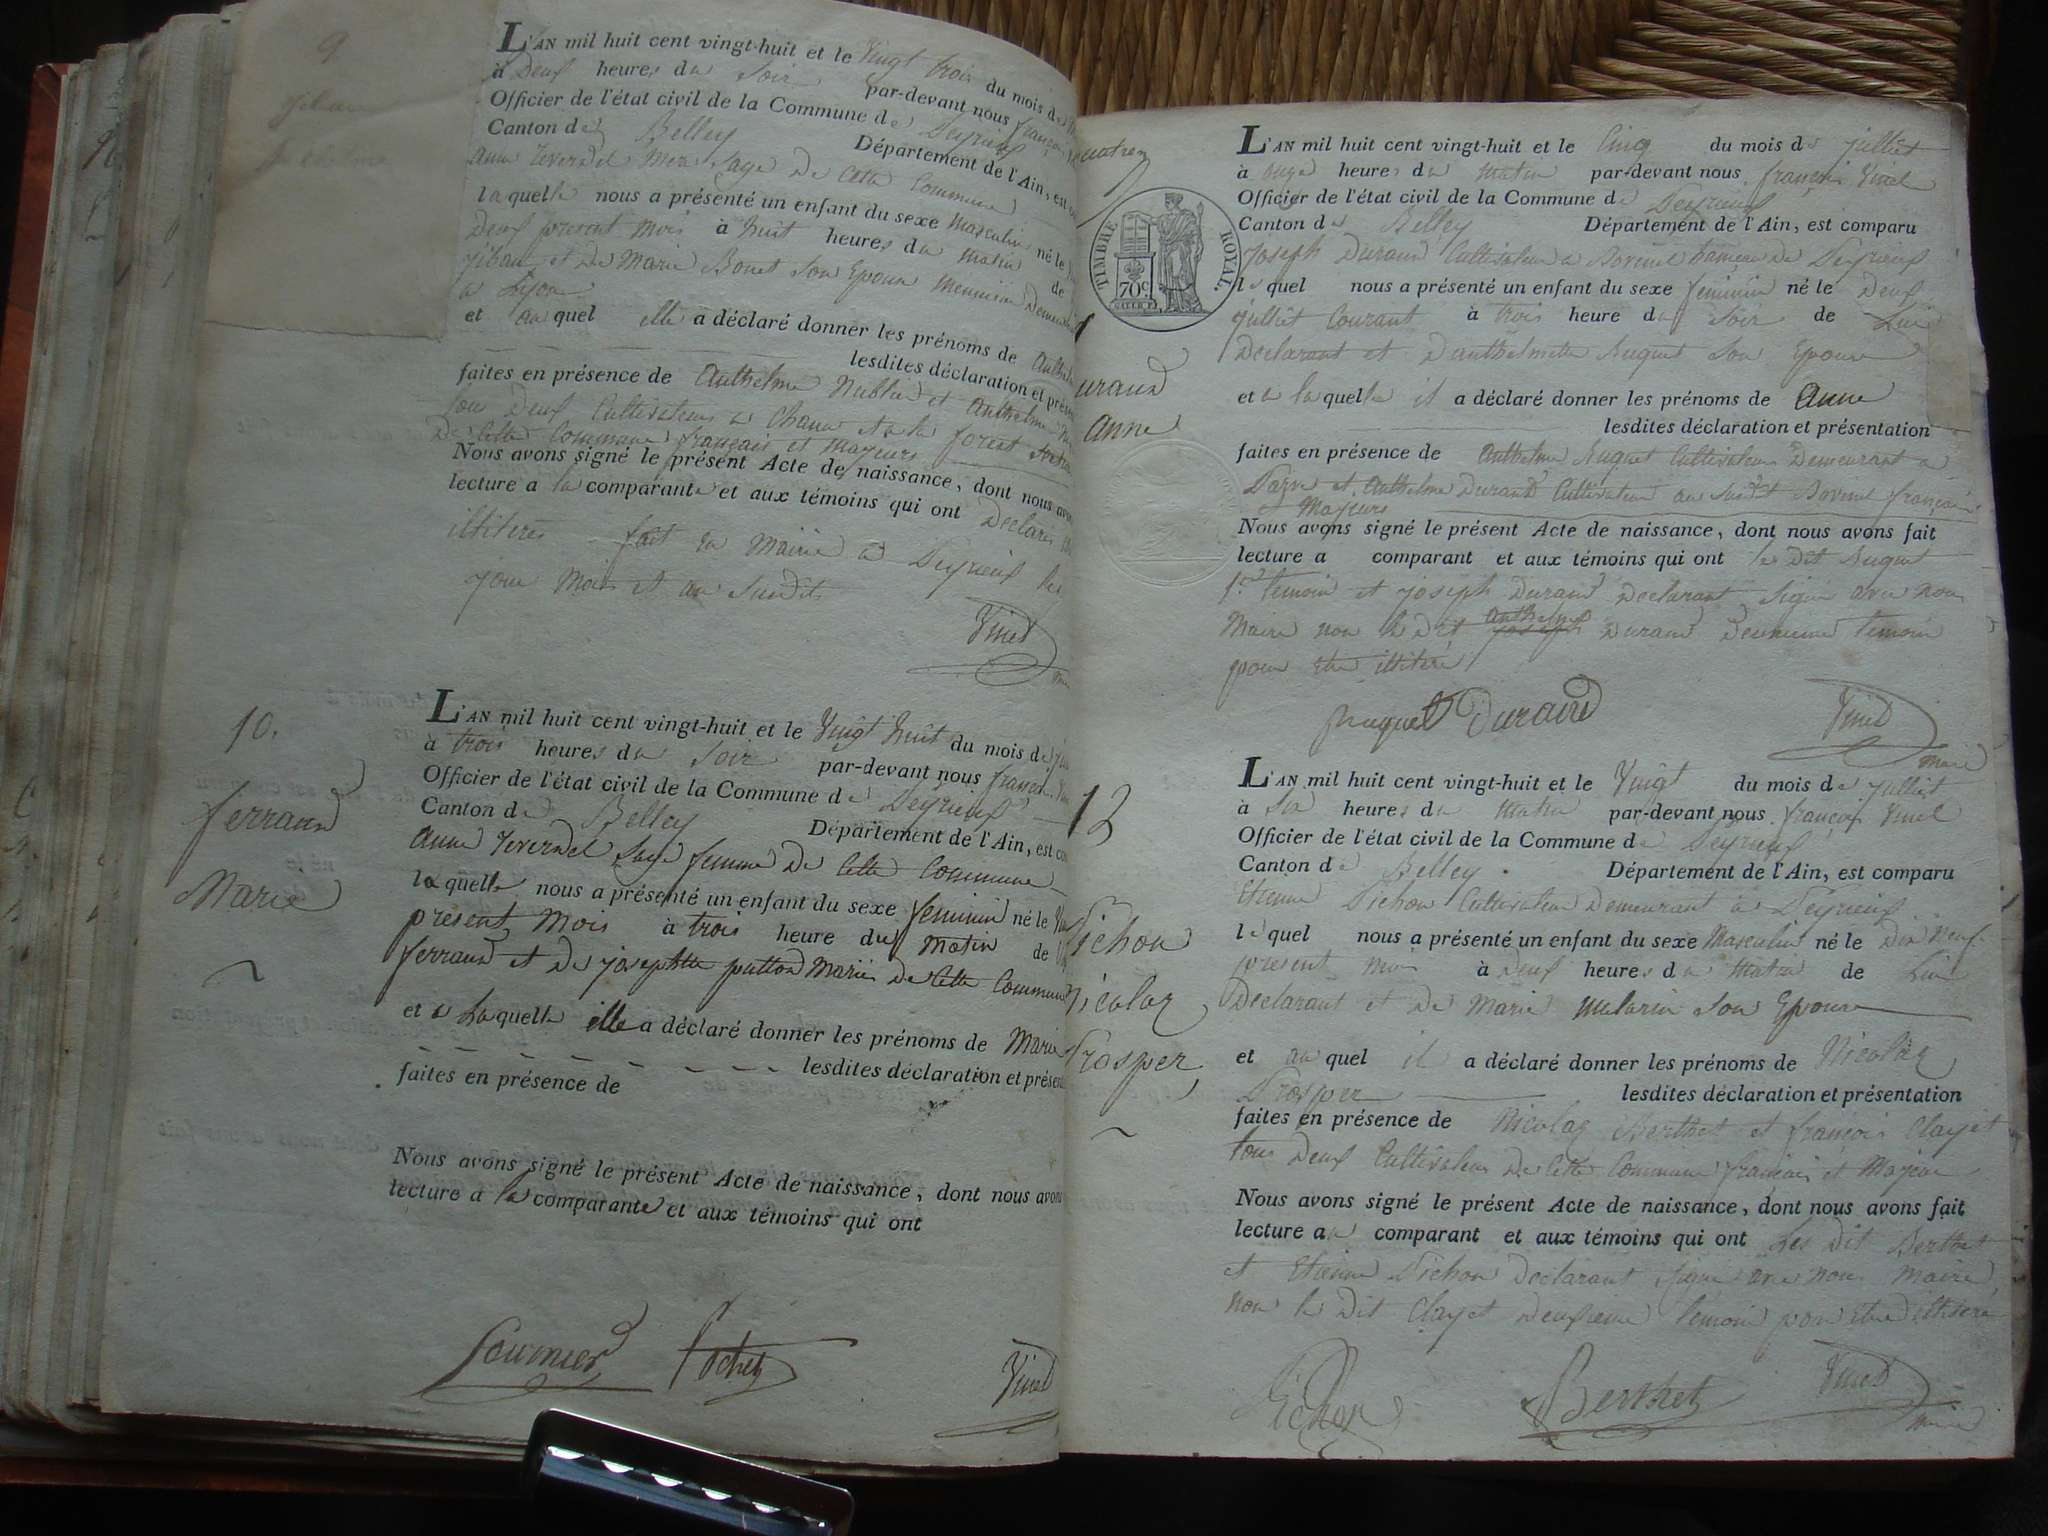 9
L'AN mil huit cent vingt-huit et le Vingt trois du mois de
à Deux heures du Soir par-devant nous françois
Officier de l'état civil de la Commune de Peyrieux
Canton de Belley Département de l'Ain, est
anne Mere Sage De Cette Commune
laquelle nous a présenté un enfant du sexe Masculin né le
Deux present Mois à huit heures du Matin de
et De Marie Bonet Son Epouse Demeurant
a Lyon
et auquel elle a déclaré donner les prénoms de
lesdites déclaration et
faites en présence de Anthelme et Anthelme
tou Deux Cultivateurs a et a la forest
De Cette Commune français et majeurs
Nous avons signé le présent Acte de naissance, dont nous
lecture a la comparante et aux témoins qui ont Declarés
illiteres fait en Mairie a Peyrieux les
jour Mois et an Susdit
Vinet
10.
ferrand
Marie
L'AN mil huit cent vingt-huit et le Vingt huit du mois de
à trois heures du Soir par-devant nous françois
Officier de l'état civil de la Commune de Peyrieux
Canton de Belley Département de l'Ain, est
anne Sage femme De Cette Commune
laquelle nous a présenté un enfant du sexe feminin né le
present Mois à trois heure du Matin de
ferrand et De josephtte Mariés De Cette Commune
et a Laquelle elle a déclaré donner les prénoms de Marie
lesdites déclaration et
faites en présence de
Nous avons signé le présent Acte de naissance, dont nous
lecture a la comparante et aux témoins qui ont
Fournier Cochet Vinet
TIMBRE ROYAL
70c
anne
L'AN mil huit cent vingt-huit et le Cinq du mois de juillet
à onze heures du Matin par-devant nous françois Vinet
Officier de l'état civil de la Commune de Peyrieux
Canton de Belley Département de l'Ain, est comparu
joseph Durand Cultivateur a hameau De Peyrieux
lequel nous a présenté un enfant du sexe feminin né le Deux
juillet Courant à trois heure du Soir de Lui
Declarant et D'anthelmette Huguet Son Epouse
et a laquelle il a déclaré donner les prénoms de anne
lesdites déclaration et présentation
faites en présence de Anthelme Huguet Cultivateur Demeurant a
et Anthelme Durand Cultivateur au Susdit français
Majeurs
Nous avons signé le présent Acte de naissance, dont nous avons fait
lecture a comparant et aux témoins qui ont le Dit Huguet
1er temoin et joseph Durand Declarant Signé avec nous
Maire non le Dit anthelme joseph Durand Deuxieme temoin
pour Etre illiteré
Huguet Durand Vinet
maire
12
Pichon
Nicolas
Prosper
L'AN mil huit cent vingt-huit et le Vingt du mois de juillet
à Six heures du Matin par-devant nous françois Vinet
Officier de l'état civil de la Commune de Peyrieux
Canton de Belley Département de l'Ain, est comparu
Etienne Pichon Cultivateur Demeurant a Peyrieux
lequel nous a présenté un enfant du sexe Masculin né le Dix Neuf
present Mois à Deux heures du Matin de Lui
Declarant et De Marie Son Epouse
et auquel il a déclaré donner les prénoms de Nicolas
Prosper lesdites déclaration et présentation
faites en présence de Nicolas Berthet et françois Clayet
tous Deux Cultivateur De Cette Commune français et Majeur
Nous avons signé le présent Acte de naissance, dont nous avons fait
lecture au comparant et aux témoins qui ont Les Dit Berthet
et Etienne Pichon Declarant Signé avec nous Maire
non le Dit Clayet Deuxieme temoin pour Etre illiteré
Pichon Berthet Vinet
maire